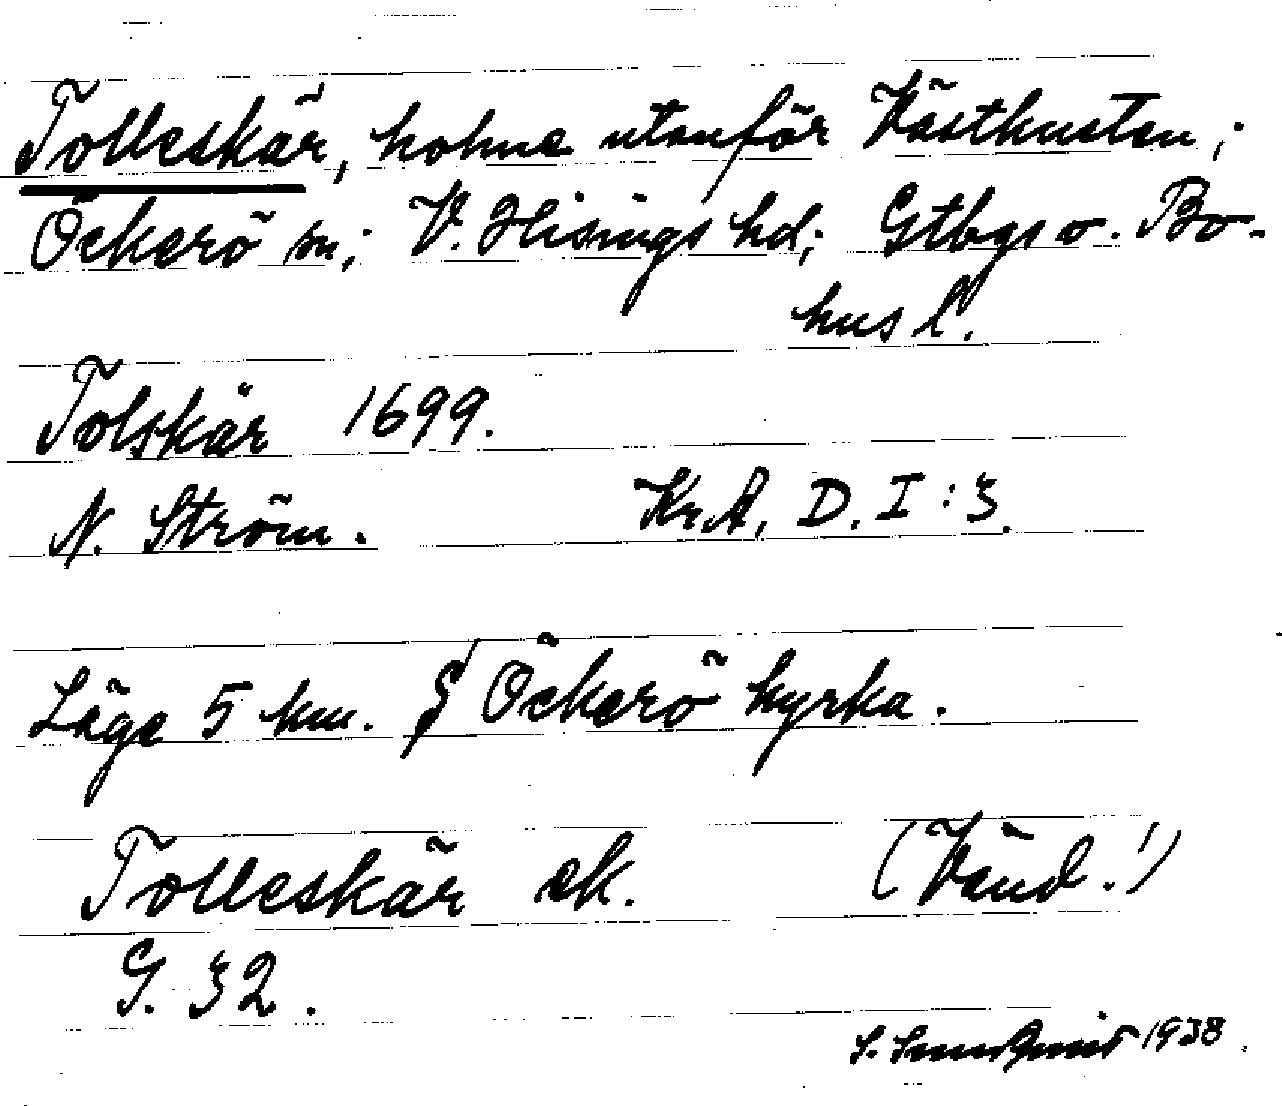 Tolleskär, holme utanför Västkusten;
Öckerö sn; V. Hisings hd; Gtbgs o. Bo-
hus l.
Tolskär 1699.
N. Ström. Kr.A, D. I : 3.
Läge 5 km. S Öckerö kyrka.
Tolleskär ek. (Vänd!)
G. 32.
S. 1938.